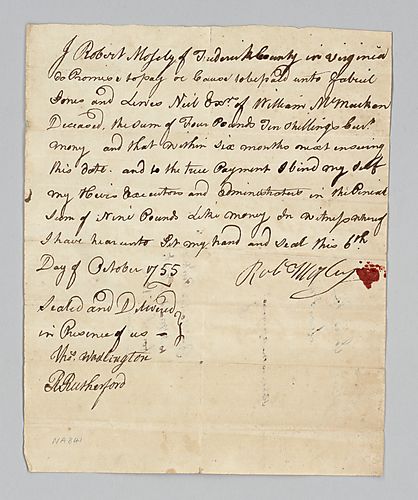 I Robert Mosely of Frederick County in Virginia
do Promise to pay or Cause to be paid unto Gabriel
Jones and Lewis Neil Exrs of William McMachen
Deceased, the sum of Four Pounds Ten shillings Curt.
mony and that within six months next insueing
this date. and to the true Payment I bind my self
my Heirs Executors and administrators in the Peneal
Sum of Nine Pounds Like money In witness whereof
I have hear unto Set my hand and seal this 6th
Day of October 1755
Robt Mosley
Sealed and Delivered
in Presence of us
Thos. Wadlington
R Rutherford
NA841